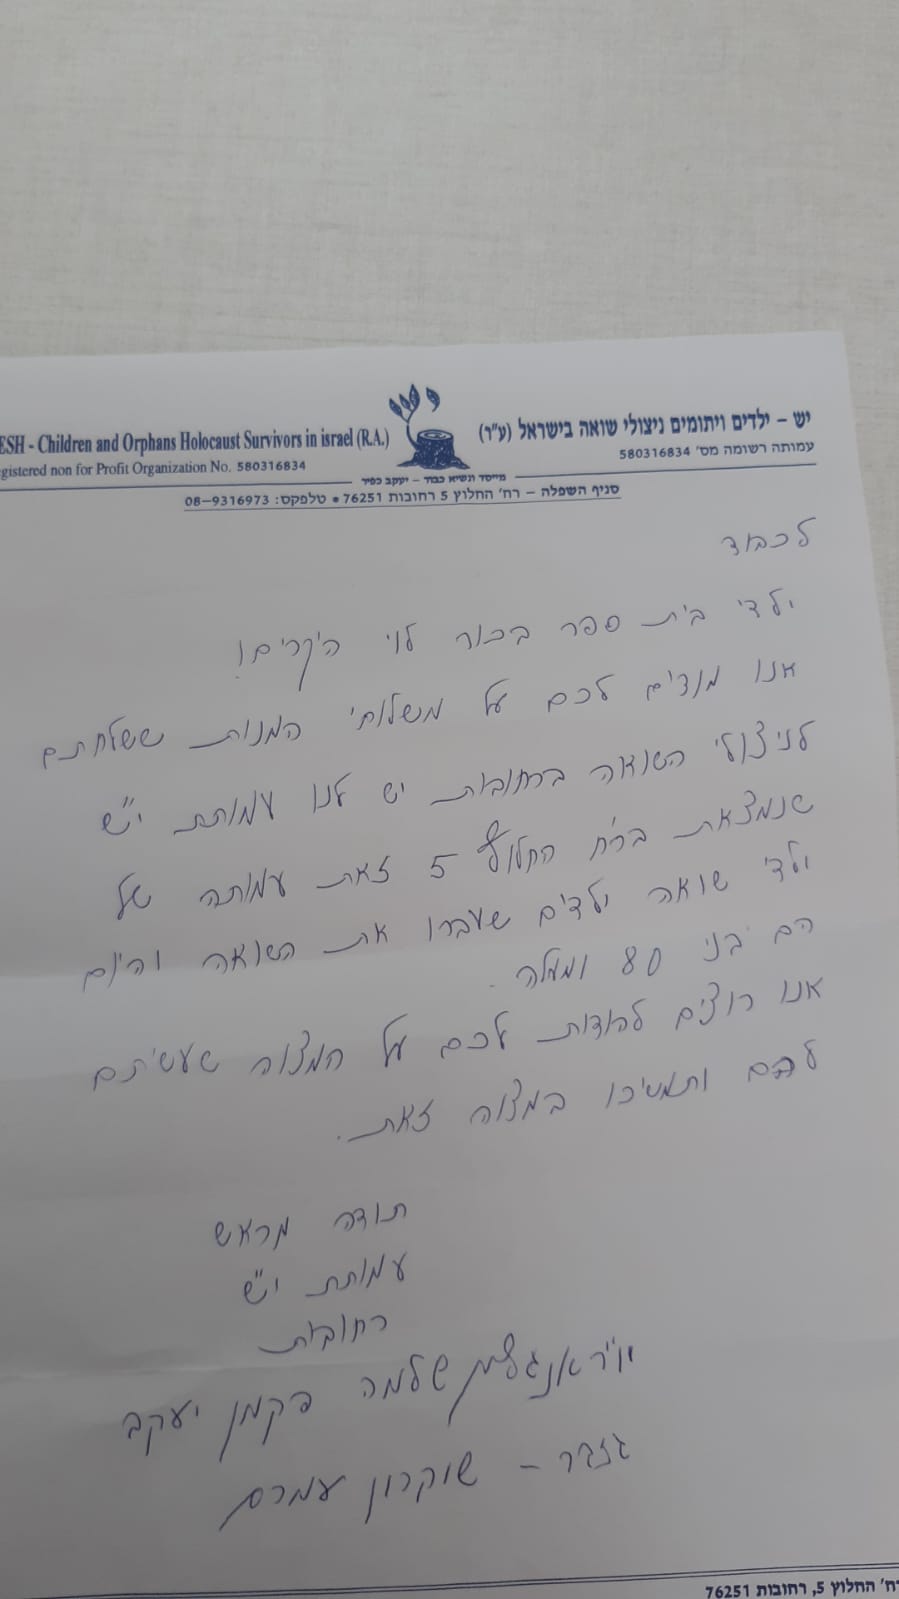 יש - ילדים ויתומים ניצולי שואה בישראל (ע"ר)
עמותה רשומה מס' 580316834
ESH - Children and Orphans Holocaust Survivors in israel (R.A.)
gistered non for Profit Organization No. 580316834
מייסד ונשיא כבוד - יעקב כפיר
סניף השפלה - רח' החלוץ 5 רחובות 76251 • טלפקס: 08-9316973
לכבוד
ילדי בית ספר בכור לוי היקרים!
אנו מודים לכם על משלוחי המנות ששלחתם
לניצולי השואה ברחובות יש לנו עמותת י"ש
שנמצאת ברח החלוץ 5 זאת עמותה של
ילדי שואה ילדים שעברו את השואה והיום
הם בני 80 ומעלה.
אנו רוצים להודות לכם על המצוה שעשיתם
להם ותמשיכו במצוה זאת.
תודה מראש
עמותת י"ש
רחובות
יו"ר שלמה יעקב
גזבר - שוקרון עמרם
רח' החלוץ 5, רחובות 76251